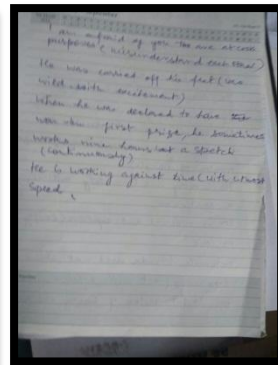 I am afraid of you too are at cross
purposes (misunderstand each other)
He was carried off his feet (was
wild with excitement)
When he was declared to have
won the first prize, he sometimes
works nine hours at a stretch
(continuously)
He is working against time (with utmost
speed